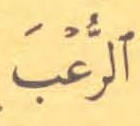 ٱلرُّعْبَ